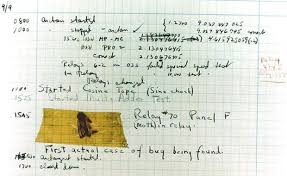 9/9
0800 antan started
1000 " stopped - antan 1.2700 9.037 847 025
MP - MC 9.037 846 995
033 PRO 2 2.130476415 4.615925059(-2)
correct 2.130676415
Relays 6-2 in 033 failed special speed test
in Relay test
Relays changed
1100 Started Cosine Tape (Sine check)
1525 Started Multi Adder Test.
1545 Relay #70 Panel F
(moth) in relay.
First actual case of bug being found.
1630 antangent started.
1700 closed down.